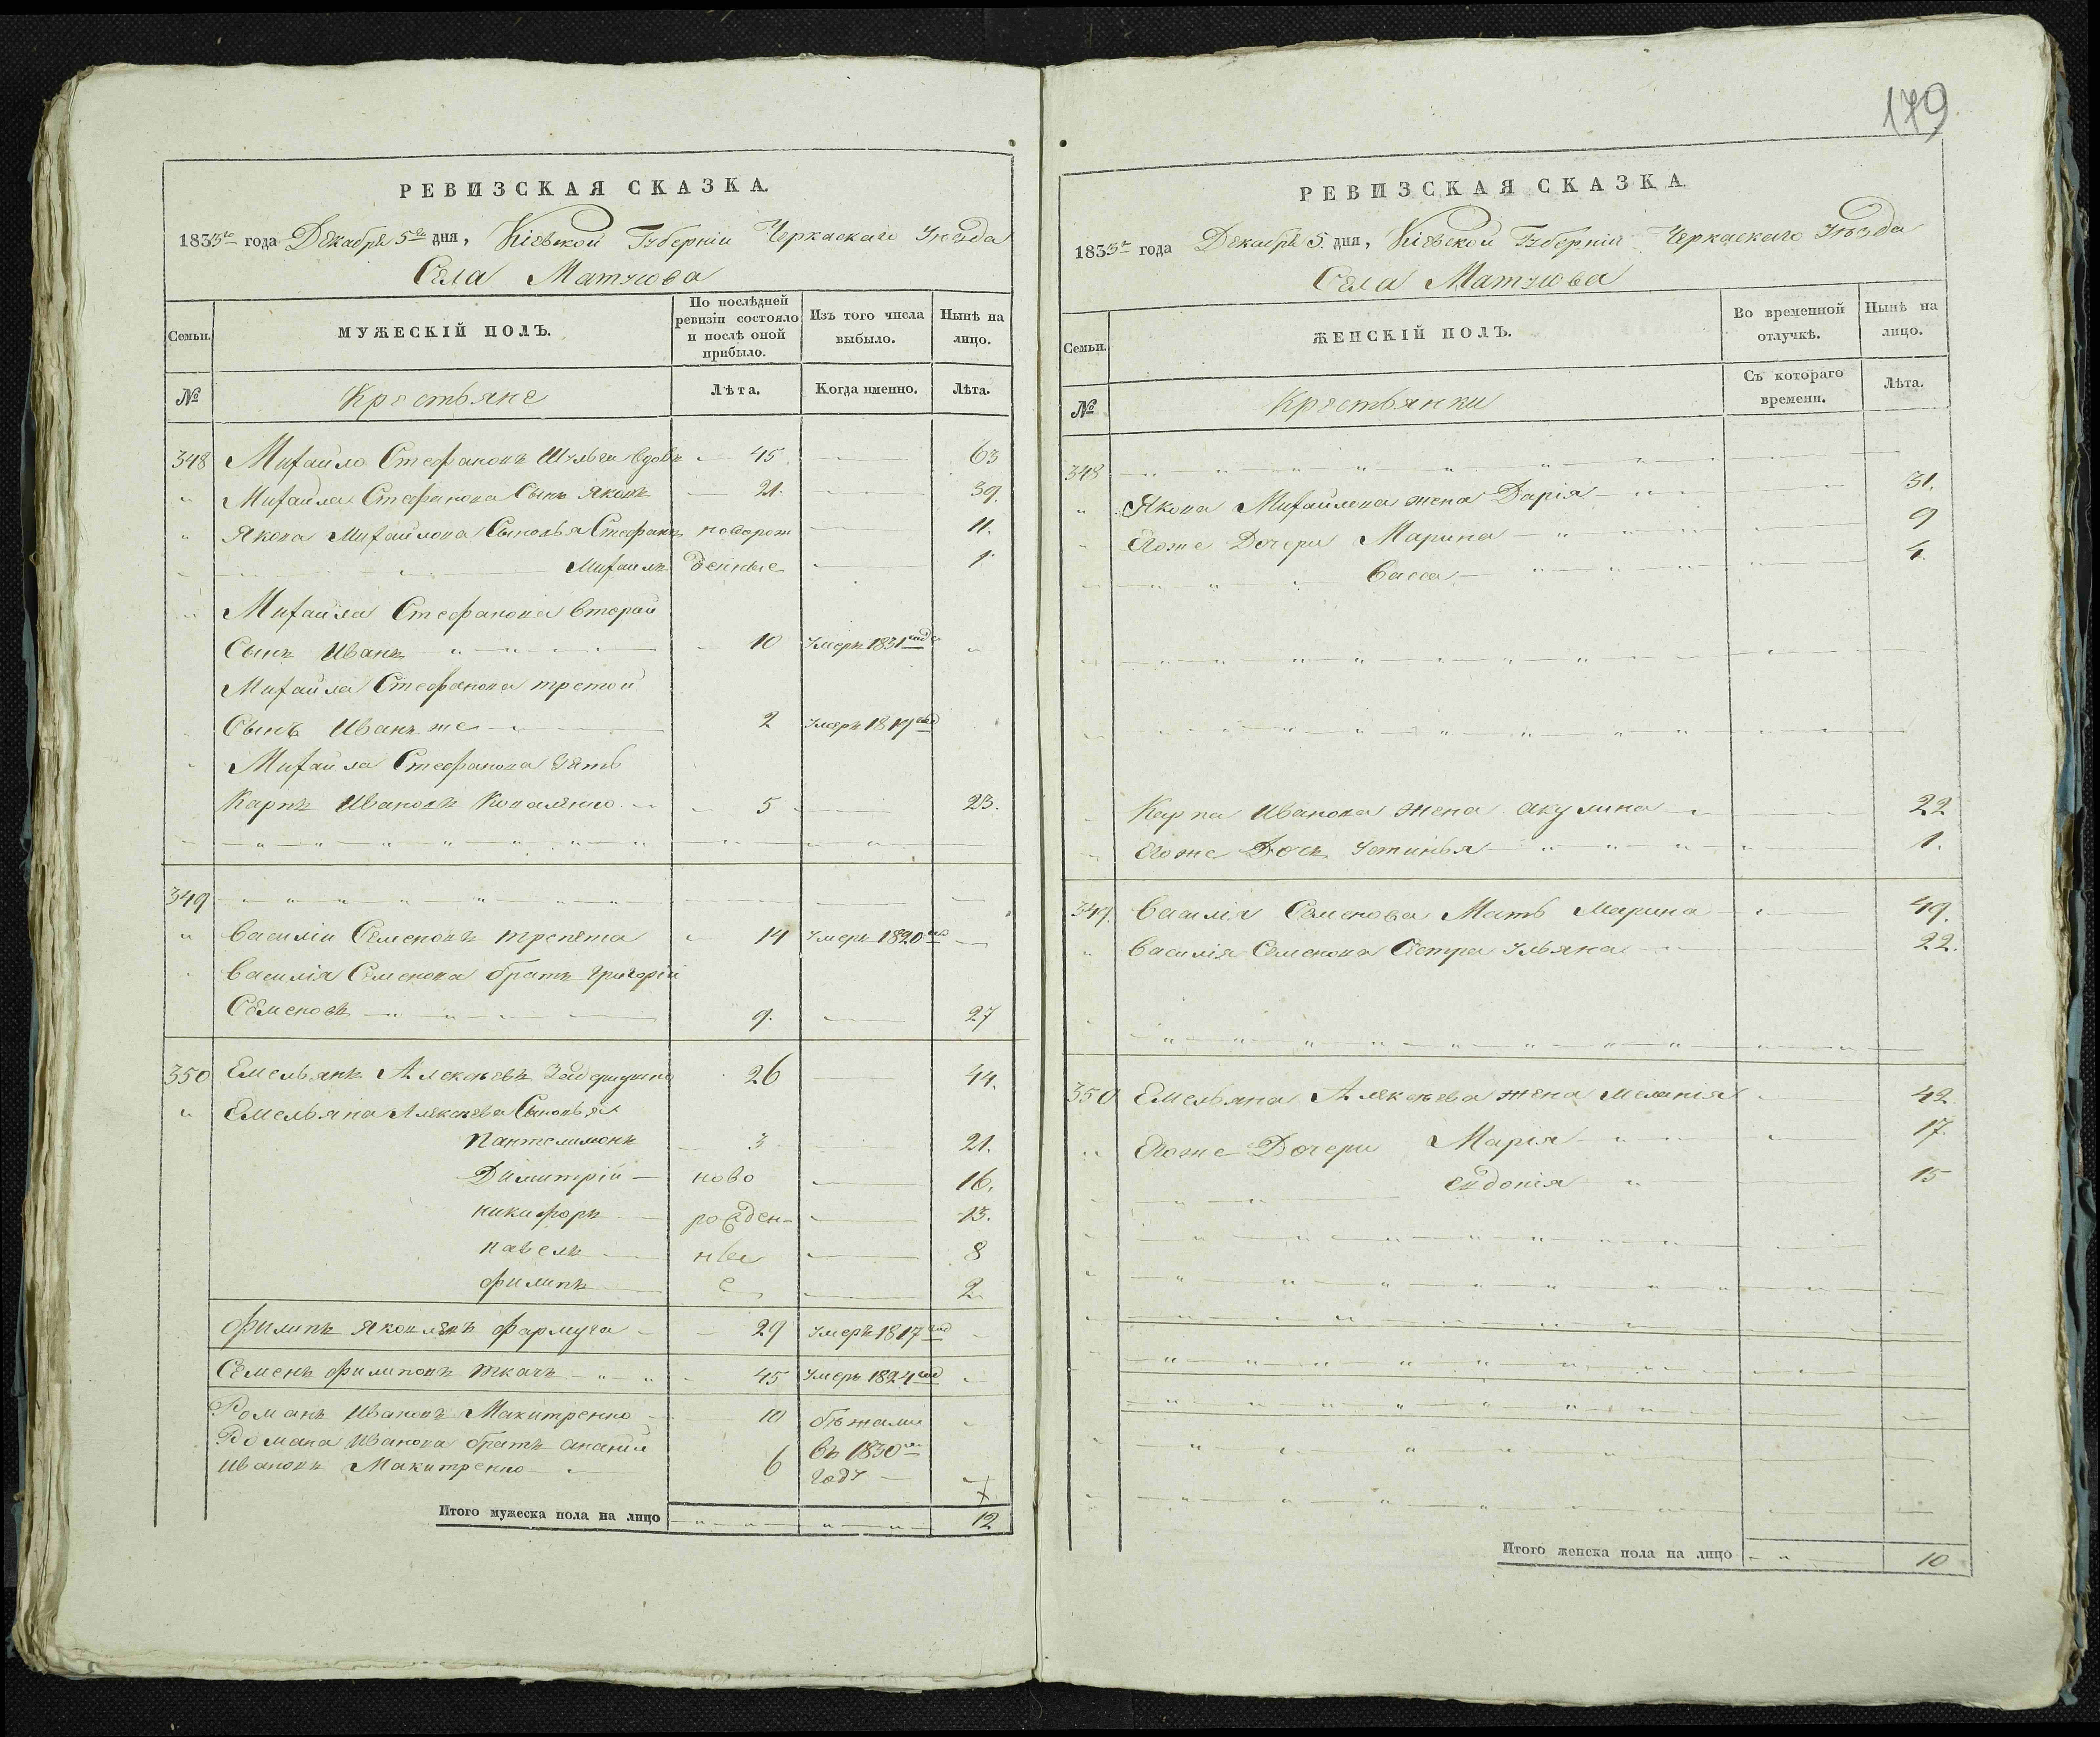 179
РЕВИЗСКАЯ СКАЗКА.
1835го года Декабря 5го дня, Кіевской Губерніи Черкаскаго Уезда
Села Матусова
Семьи.
МУЖЕСКІЙ ПОЛЪ.
По послѣдней ревизіи состояло и послѣ оной прибыло.
Изъ того числа выбыло.
Нынѣ на лицо.
№
Крестьяне
Лѣта.
Когда именно.
Лѣта.
348 Михайло Стефановъ Шульга вдовъ 45 63
Михайла Стефанова Сынъ Яковъ 21. 39.
Якова Михайлова Сыновья Стефанъ новорож 11.
Михаилъ денные 1
Михайла Стефанова второй
Сынъ Иванъ 10 умеръ 1831 год
Михайла Стефанова третой
Сынъ Иванъ же 2 умеръ 1819 год
Михайла Стефанова зять
Карпъ Ивановъ Коваленко 5 23.
349
Василіи Семеновъ трепета 14 умеръ 1820 год
Василія Семенова братъ григорій
Семеновъ 9. 27
350 Емельянъ Алексѣевъ 26 44.
Емельяна Алексѣева Сыновья
Пантелимонъ 3 21.
Димитрій ново 16.
никифоръ рожден- 13.
павелъ ны 8
филипъ е 2
филипъ Яковлевъ фармуга 29 умеръ 1817 год
Семенъ филиповъ ткачъ 45 умеръ 1824 год
Романъ Ивановъ Макитренко 10 бѣжали
Романа Иванова братъ ананій въ 1830м
Ивановъ Макитренко 6 году
Итого мужеска пола на лицо 12
РЕВИЗСКАЯ СКАЗКА.
1835го года Декабря 5. дня, Кіевской Губерніи Черкаскаго Уезда
Села Матусова
Семьи.
ЖЕНСКІЙ ПОЛЪ.
Во временной отлучкѣ.
Нынѣ на лицо.
№
Крестьянки
Съ котораго времени.
Лѣта.
348
Якова Михайлова жена Дарія 31.
Егоже Дочери Марина 9
Васса 4.
Карпа Иванова жена акулина 22
Егоже Дочь Устинья 1.
349. Василія Семенова Мать Марина 49.
Василія Семенова Сестра Ульяна 22.
350 Емельяна Алексѣева жена Меланія 42
Егоже Дочери Марія 17.
евдокія 15
Итого женска пола на лицо 10